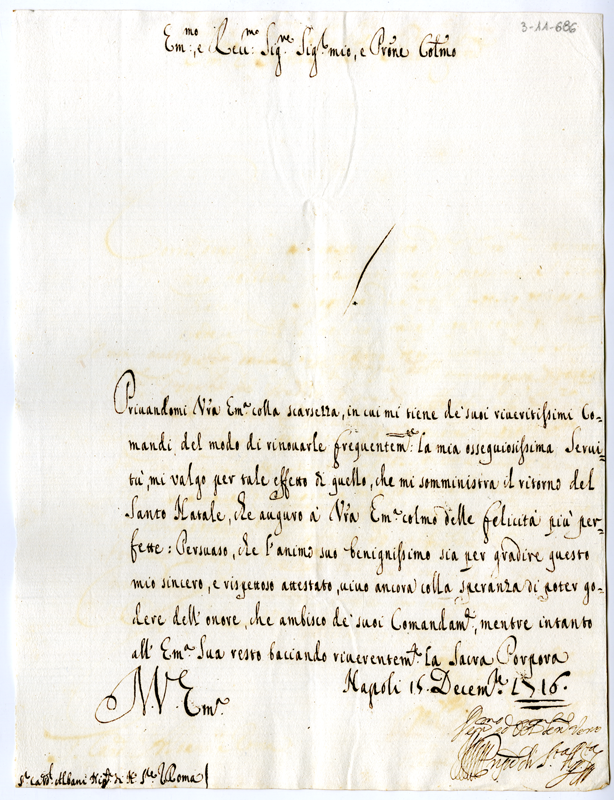 3-11-686
Em.mo, e Reu.mo Sig.re Sig.r mio, e Prone Colmo
Priuandomi Vr̃a Em.a colla scarsezza, in cui mi tiene de' suoi riueritissimi Co-
mandi del modo di rinouarle frequentem.te la mia ossequiosissima Serui-
tù, mi valgo per tale effetto di quello, che mi somministra il ritorno del
Santo Natale, che auguro à Vr̃a Em.a colmo delle felicità più per-
fette: Persuaso, che l'animo suo benignissimo sia per gradire questo
mio sincero, e rispettoso attestato, uiuo ancora colla speranza di poter go-
dere dell'onore, che ambisco de' suoi Comandam.ti, mentre intanto
all'Em.a Sua resto baciando riuerentem.te la Sacra Porpora
Napoli 15. Decem.re 1716.
V.ra Em.a
S.r Ca.rd. Albani Nip.e di N. S.re Roma